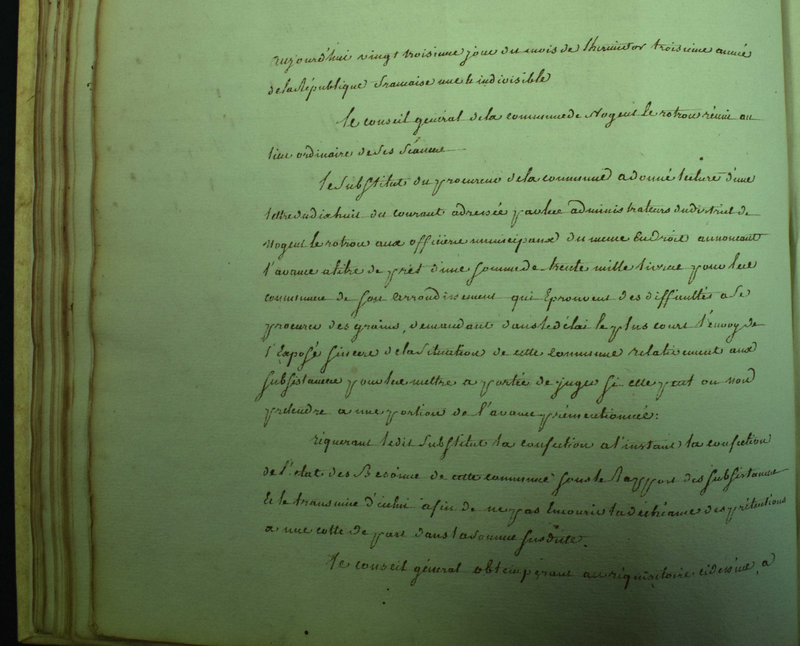 aujourd'hui vingt troisieme jour du mois de thermidor troisieme année
de la République francaise une et indivisible
le conseil général de la commune de Nogent le rotrou réuni au
lieu ordinaire de ses séances
le substitut du procureur de la commune a donné lecture d'une
lettre du dix huit du courant adressée par les administrateurs du district de
Nogent le rotrou aux officiers municipaux du meme Endroit annoncant
l'avance a titre de prêt d'une somme de trente mille livres pour les
communes de son arrondissement qui Eprouvent des difficultés a se
procurer des grains, demandant dans le délai le plus court l'envoy de
l'Exposé sincere de la situation de cette commune relativement aux
subsistances pour les mettre a portée de juger si elle peut ou non
prétendre a une portion de l'avance prémentionnée:
réquerant ledit substitut la confection a l'instant la confection
de l'état des Besoins de cette commune sous le Rapport des subsistances
Et le transmire d'icelui afin de ne pas Encourir la déchéance des prétentions
a une cotte de part dans la somme susdite.
le conseil général obtempérant au réquisitoire cidessus, a